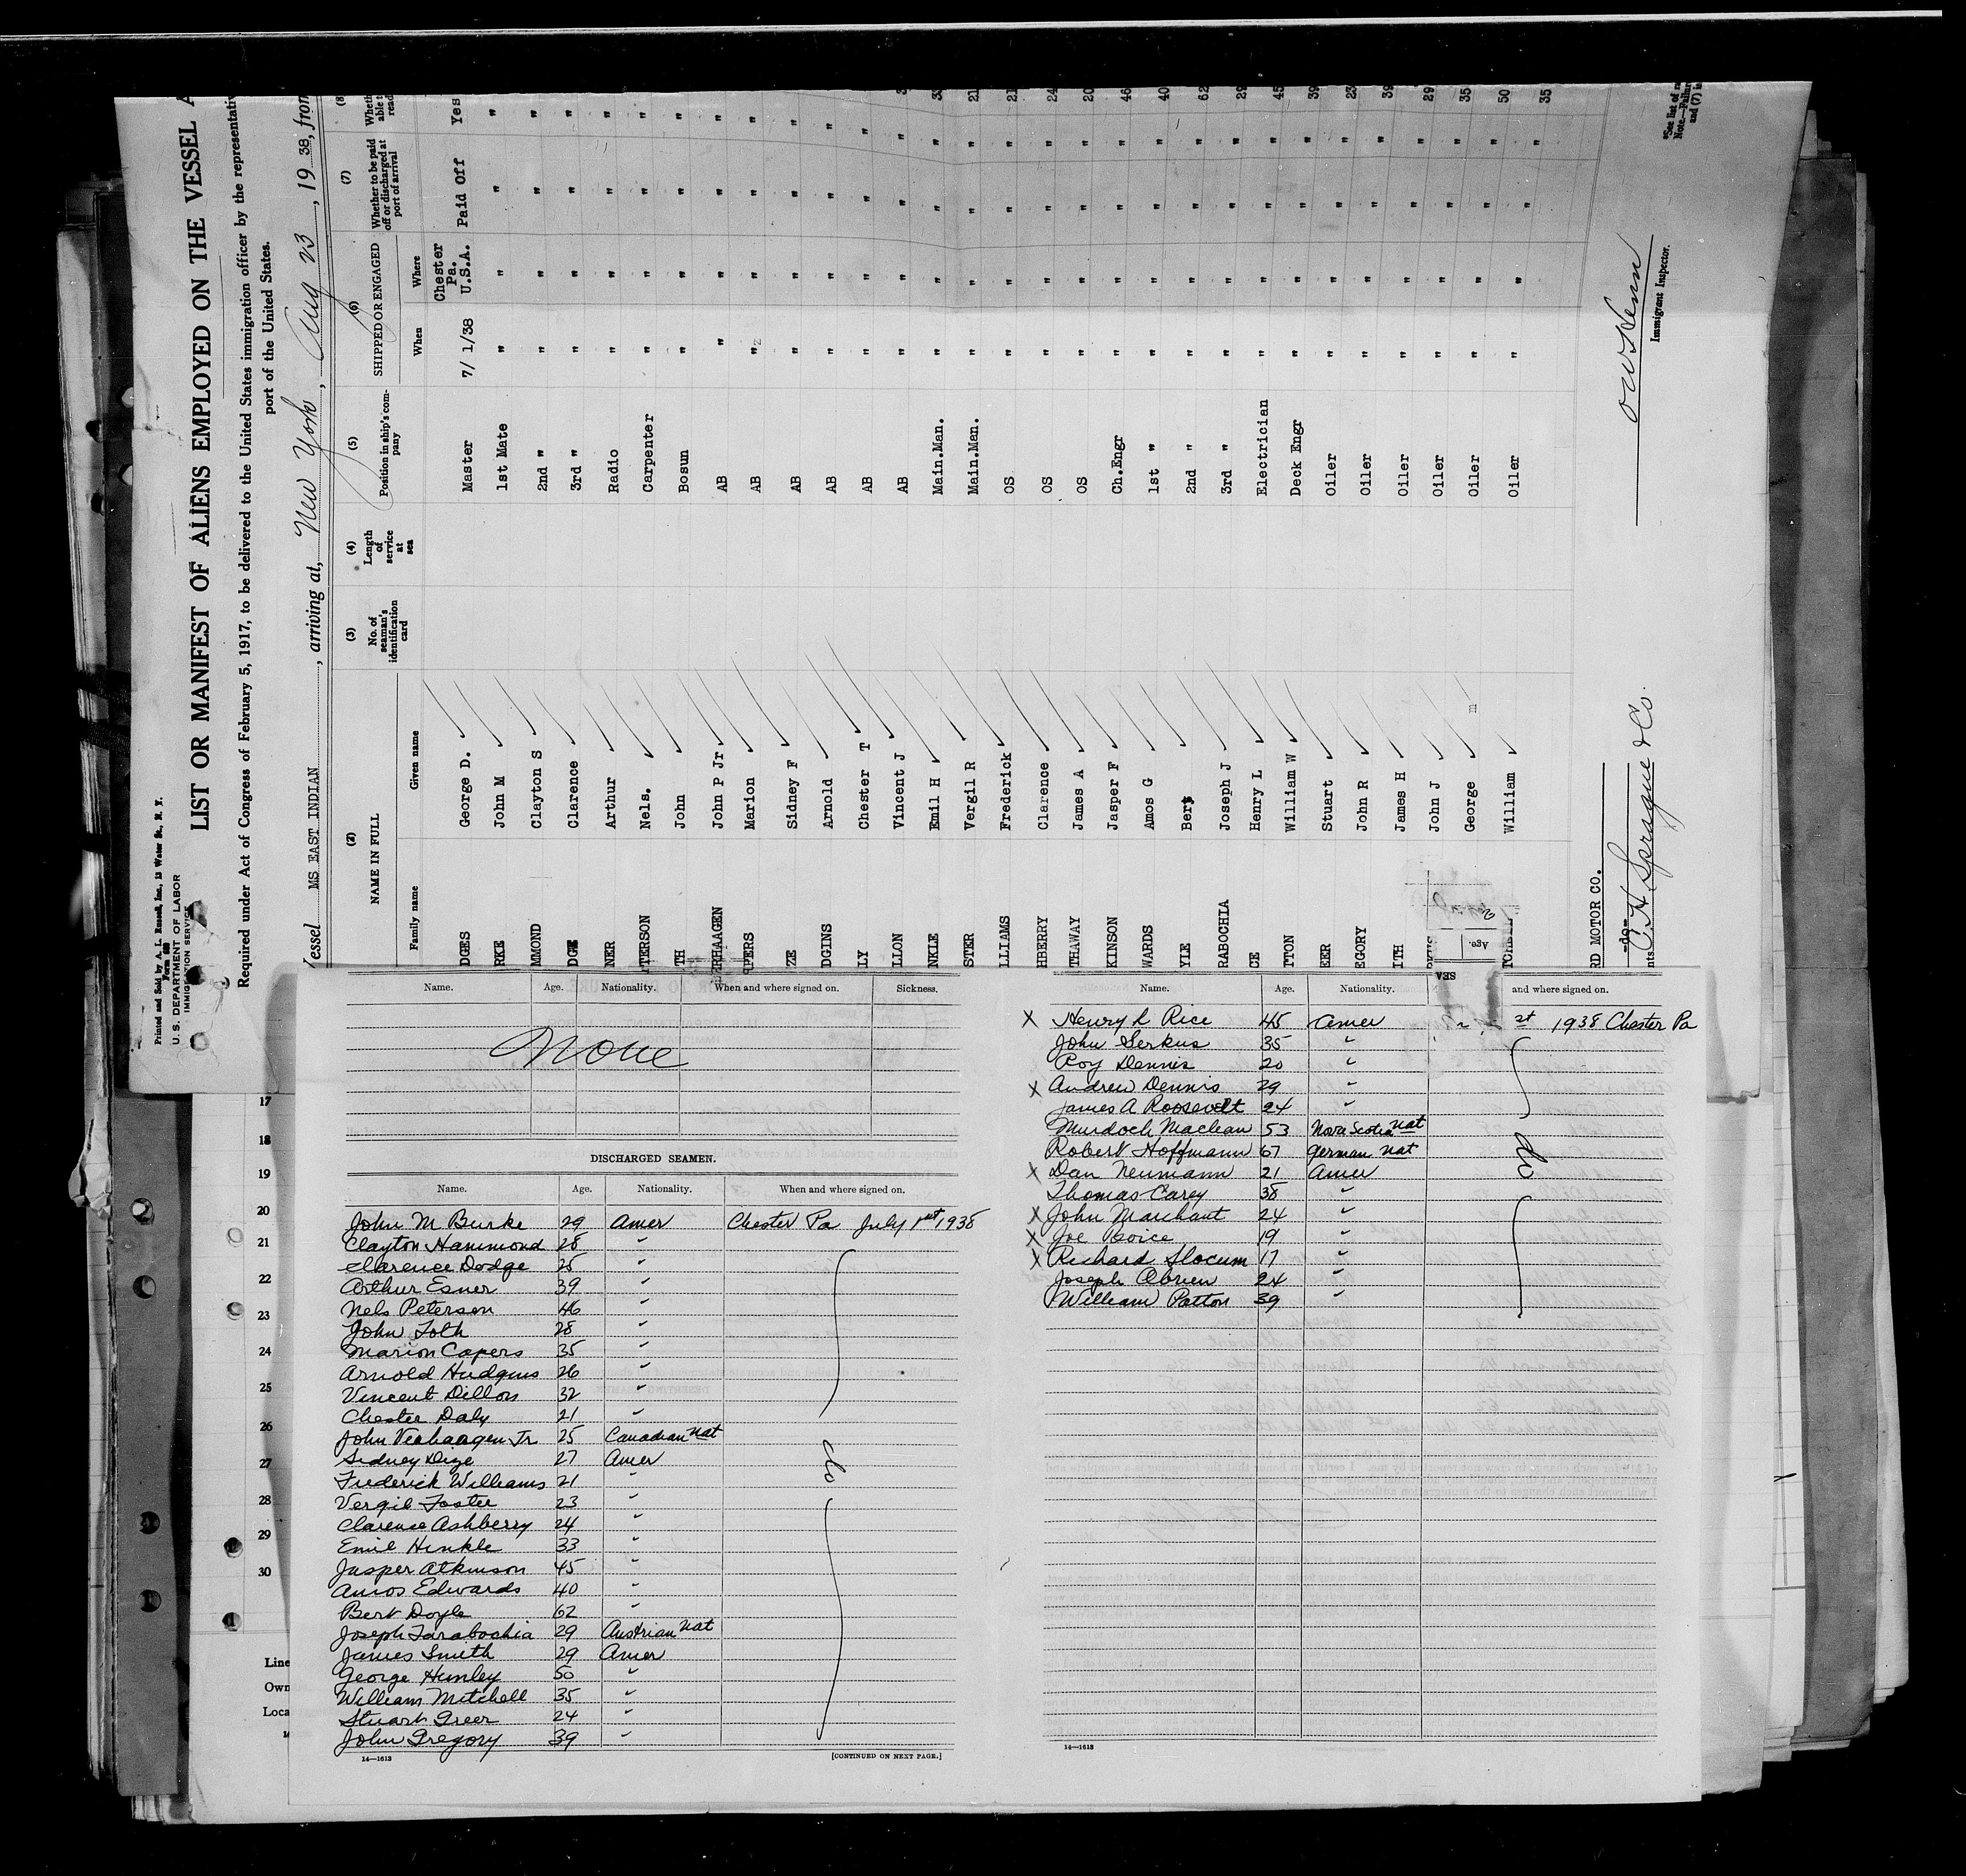 Printed and Sold by A. L. Russell, Inc., 13 Water St., N. Y.
U. S. DEPARTMENT OF LABOR
IMMIGRATION SERVICE
LIST OR MANIFEST OF ALIENS EMPLOYED ON THE VESSEL A
Required under Act of Congress of February 5, 1917, to be delivered to the United States immigration officer by the representativ
port of the United States.
Vessel MS EAST INDIAN, arriving at, New York, Aug 23, 1938, from
(2) (3) (4) (5) (6) (7) (8
NAME IN FULL
Family name Given name
No. of seaman's identification card
Length of service at sea
Position in ship's company
SHIPPED OR ENGAGED
When Where
Whether to be paid off or discharged at port of arrival
DGES George D. Master 7/ 1/38 Chester Pa. U.S.A. Paid Off Yes
RKE John M 1st Mate " " " "
MMOND Clayton S 2nd " " " " "
DGE Clarence 3rd " " " " "
NER Arthur Radio " " " "
TERSON Nels. Carpenter " " " "
TH John Bosun " " " "
ERHAAGEN John P Jr AB " " " "
PERS Marion AB " " " "
ZE Sidney F AB " " " "
DGINS Arnold AB " " " "
LY Chester T AB " " " "
LLON Vincent J AB " " " " 3
NKLE Emil H Main.Man. " " " " 33
STER Vergil R Main.Man. " " " " 21
LLIAMS Frederick OS " " " " 21
HBERRY Clarence OS " " " " 24
THAWAY James A OS " " " " 20
KINSON Jasper F Ch.Engr " " " " 46
WARDS Amos G 1st " " " " " 40
YLE Bert 2nd " " " " " 62
RABOCHIA Joseph J 3rd " " " " " 29
CE Henry L Electrician " " " " 45
TTON William W Deck Engr " " " " 39
EER Stuart Oiler " " " " 23
EGORY John R Oiler " " " " 39
ITH James H Oiler " " " " 29
John J Oiler " " " " 35
George Oiler " " " " 50
William Oiler " " " " 35
RD MOTOR CO.
-do-
nts C. H. Sprague & Co.
Immigrant Inspector.
Name. Age. Nationality. When and where signed on. Sickness.
None
DISCHARGED SEAMEN.
Name. Age. Nationality. When and where signed on.
John M Burke 29 Amer Chester Pa July 1st 1938
Clayton Hammond 28 "
Clarence Dodge 25 "
Arthur Esner 39 "
Nels Peterson 46 "
John Toth 28 "
Marion Capers 35 "
Arnold Hudgins 26 "
Vincent Dillon 32 "
Chester Daly 21 "
John Verhaagen Jr 25 Canadian Nat
do
Sidney Dize 27 Amer
Frederick Williams 21 "
Vergil Foster 23 "
Clarence Ashberry 24 "
Emil Hinkle 33 "
Jasper Atkinson 45 "
Amos Edwards 40 "
Bert Doyle 62 "
Joseph Tarabochia 29 Austrian Nat
James Smith 29 Amer
George Hunley 50 "
William Mitchell 35 "
Stuart Greer 24 "
John Gregory 39 "
14—1613 [CONTINUED ON NEXT PAGE.]
Name. Age. Nationality. and where signed on.
X Henry L Rice 45 Amer st 1938 Chester Pa
John Serkus 35 "
Roy Dennis 20 "
X Andrew Dennis 29 "
James A Roosevelt 24 "
Murdoch Maclean 53 Nova Scotia Nat
Robert Hoffmann 67 German Nat
do
X Dan Neumann 21 Amer
Thomas Carey 38 "
X John Marchant 24 "
X Joe Boice 19 "
X Richard Slocum 17 "
Joseph Obrien 24 "
William Patton 39 "
14—1613
17
18
19
20
21
22
23
24
25
26
27
28
29
30
Line
Own
Loca